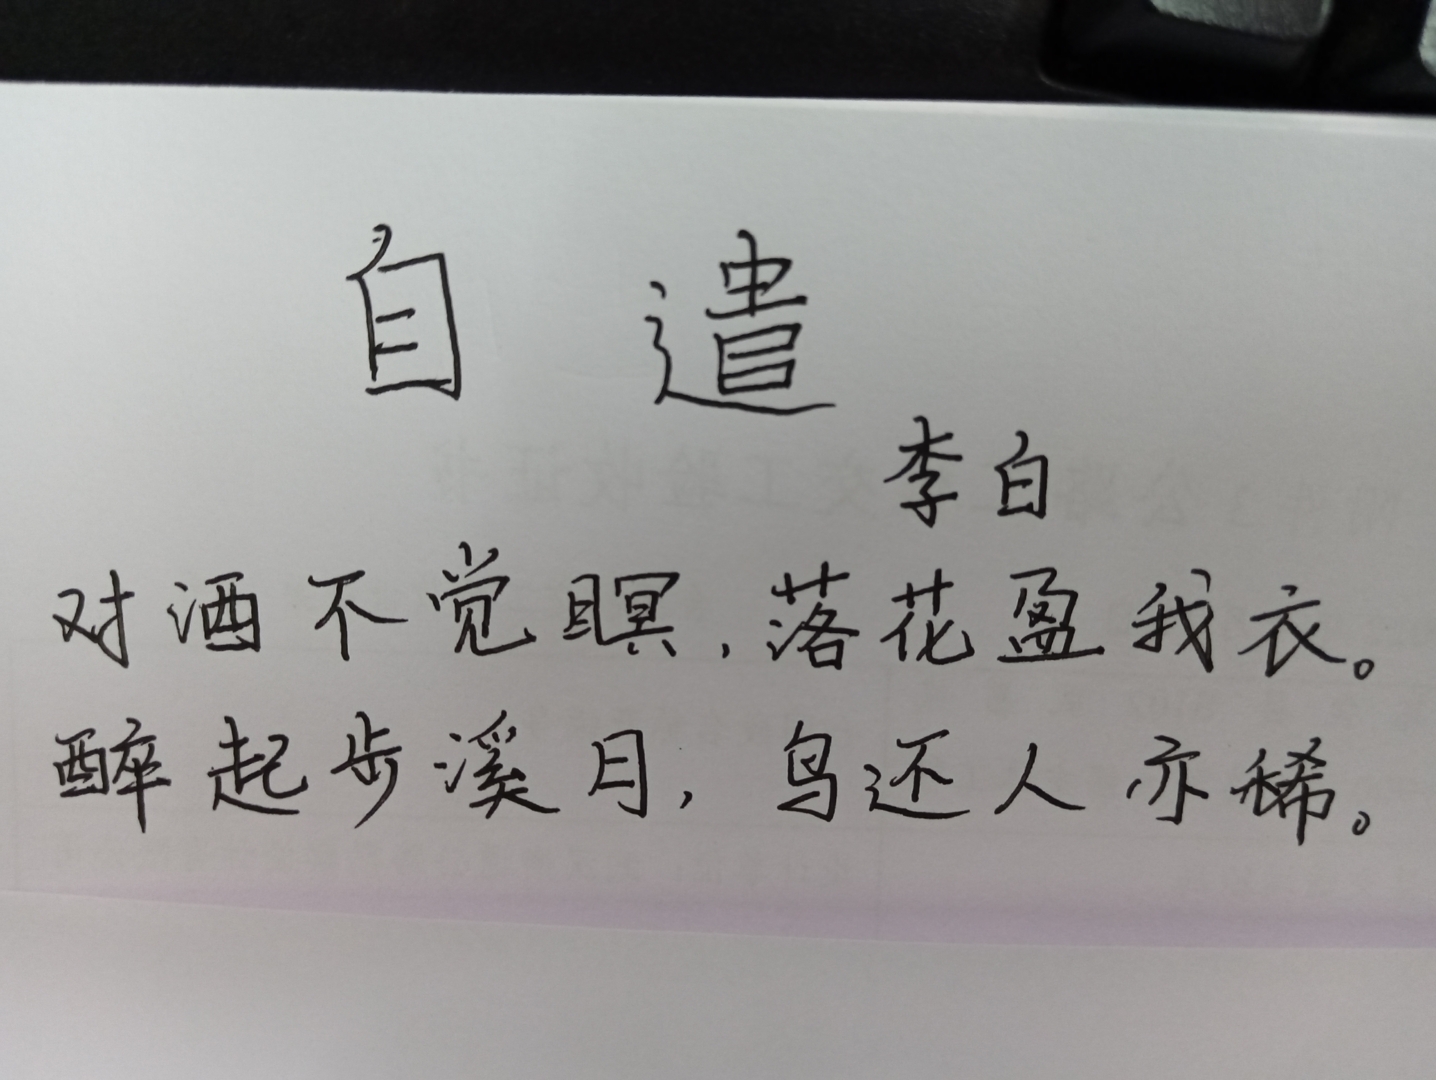 自遣
李白
对酒不觉瞑，落花盈我衣。
醉起步溪月，鸟还人亦稀。